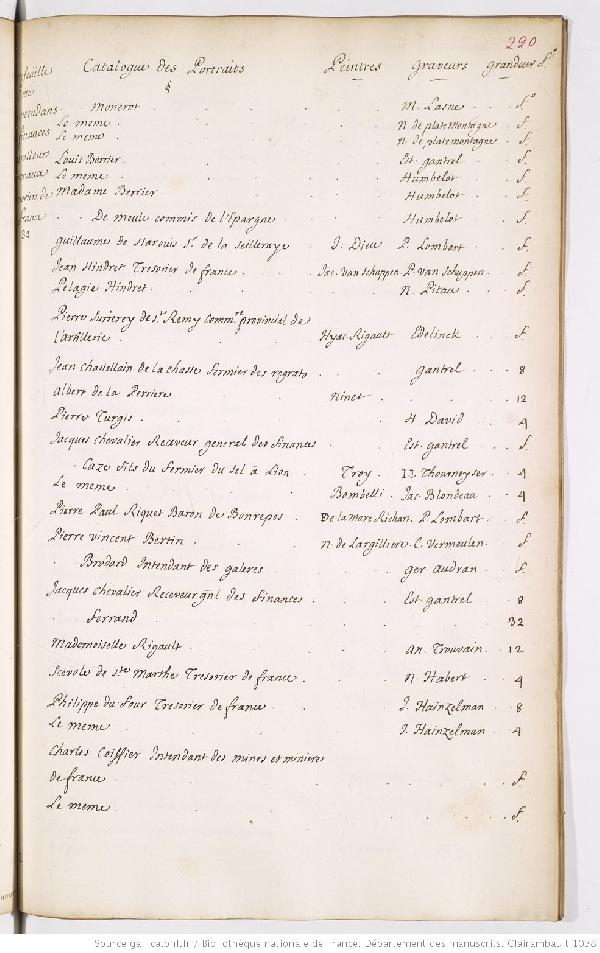 290
Catalogue des Portraits Peintres Graveurs grandeur f.°
§
Monerot M. Lasne f.°
Le meme N. de platemontagne f.
Le meme N. de platemontagne f.
Louis Berrier Est. gantrel f.
Le meme Humbelot f.
Madame Berrier Humbelot f.
De meule commis de l'Epargne Humbelot f.
guillaume de Harouis Sr. de la Seilleraye J. Dieu P. Lombart f.
Jean Hindret Tresorier de france Jac. Van Schuppen P. Van Schuppen f.
Pelagie Hindret N. Pitau f.
Pierre Surirey de St. Remy Comm.re provincial de
l'artillerie Hyac. Rigault Edelinck f.
Jean Chastellain de la chasse fermier des regrats gantrel 8
Albert de la Perriere Ninet 12
Pierre Turgis H. David 4
Jacques Chevalier Receveur general des finances Est. gantrel f.
Caze fils du fermier du sel à Lion Troy II. Thourneyser 4
Le meme Bombelli Jac. Blondeau 4
Pierre Paul Riquet Baron de Bonrepos De la Mare Richar. P. Lombart f.
Pierre vincent Bertin N. de Largilliere C. Vermeulen f.
Brodard Intendant des galeres ger. audran f.
Jacques Chevalier Receveur gnl des Finances Est. gantrel 8
Ferrand 32
Mademoiselle Rigault an. Trouvain 12
Scevole de Ste Marthe Tresorier de france N. Habert 4
Philippe du Four Tresorier de france J. Hainzelman 8
Le meme J. Hainzelman 4
Charles Coiffier Intendant des mines et minieres
de france f.
Le meme f.
32
Source gallica.bnf.fr / Bibliothèque nationale de France. Département des manuscrits. Clairambault 1038